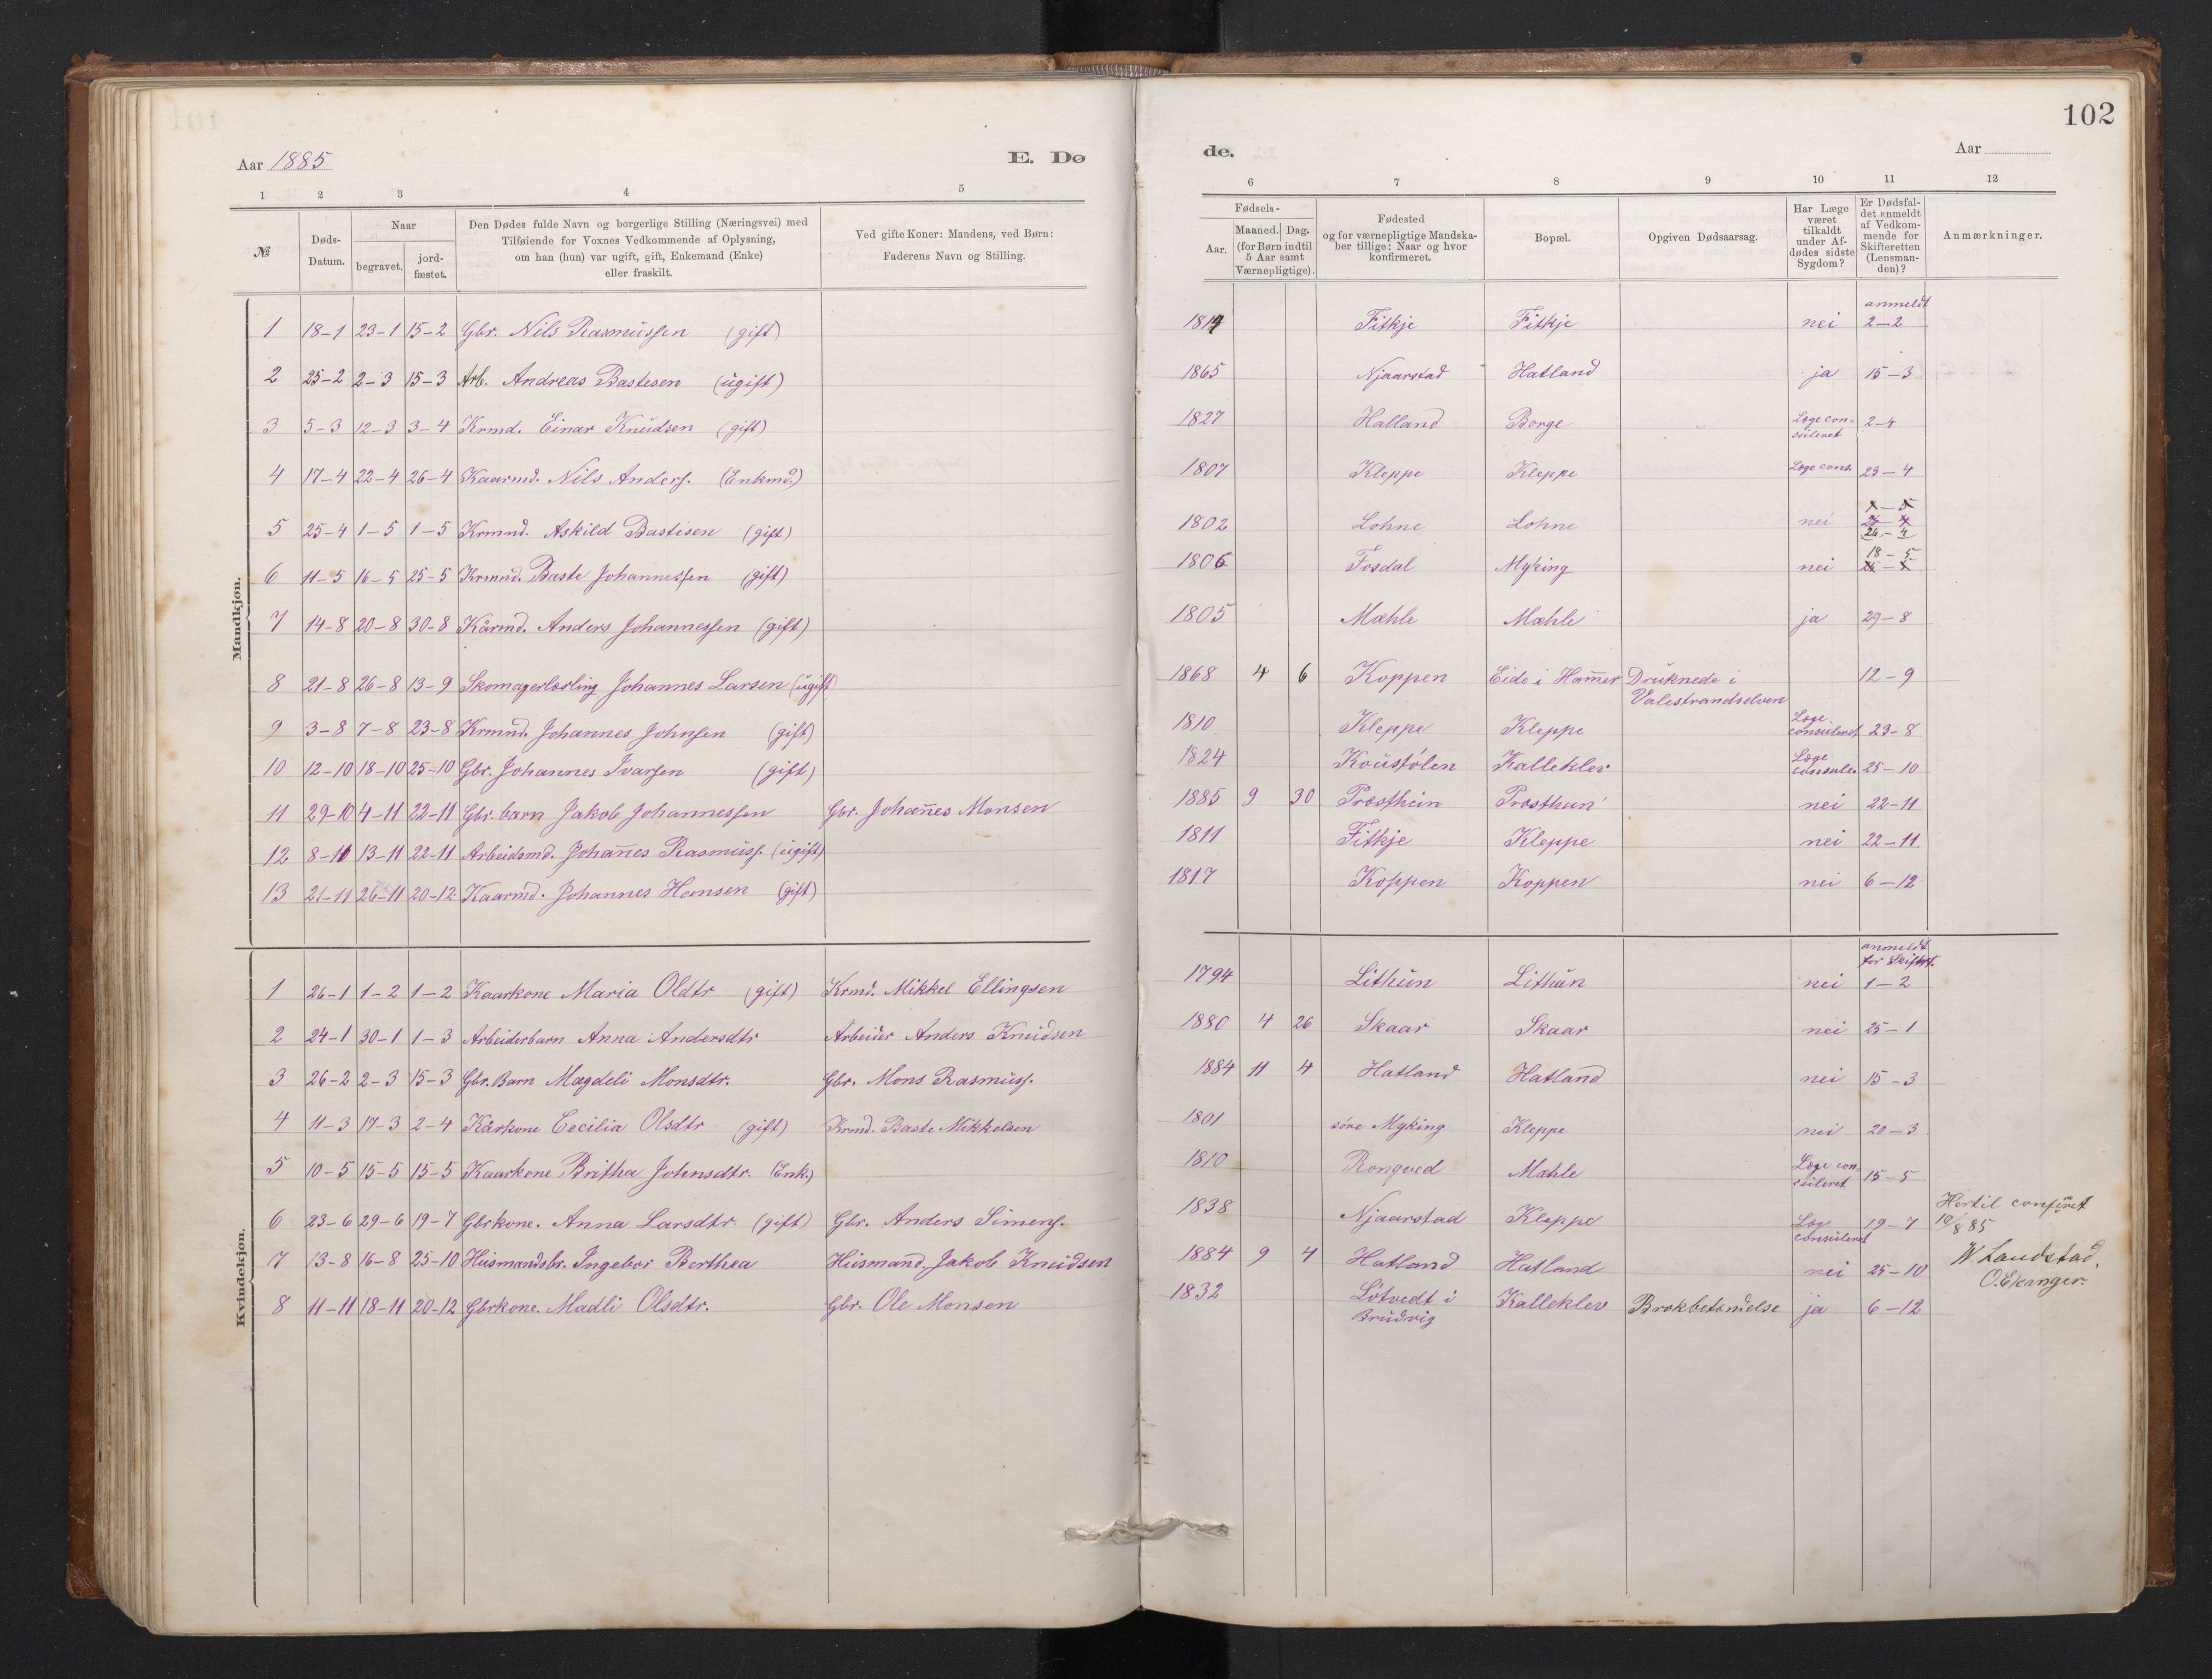 102
Aar 1885 E. Dø de. Aar
1 2 3 4 5 6 7 8 9 10 11 12
№
Døds-
Datum.
Naar
begravet.
jord-
fæstet.
Den Dødes fulde Navn og borgerlige Stilling (Næringsvei) med
Tilføiende for Voxnes Vedkommende af Oplysning,
om han (hun) var ugift, gift, Enkemand (Enke)
eller fraskilt.
Ved gifte Koner: Mandens, ved Børn:
Faderens Navn og Stilling.
Fødsels-
Aar.
Maaned. Dag.
(for Børn indtil
5 Aar samt
Værnepligtige).
Fødested
og for værnepligtige Mandska-
ber tillige: Naar og hvor
konfirmeret.
Bopæl.
Opgiven Dødsaarsag.
Har Læge
været
tilkaldt
under Af-
dødes sidste
Sygdom?
Er Dødsfal-
det anmeldt
af Vedkom-
mende for
Skifteretten
(Lensman-
den)?
Anmærkninger.
Mandkjøn.
anmeldt
1 18-1 23-1 15-2 Gbr. Nils Rasmussen (gift) 1814 Fitkje Fitkje nei 2-2
2 25-2 2-3 15-3 Arb. Andreas Bastesen (ugift) 1865 Njaarstad Hatland ja 15-3
3 5-3 12-3 3-4 Krmd. Einar Knudsen (gift) 1827 Halland Borge Læge con=
suleret 2-4
4 17-4 22-4 26-4 Kaarmd. Nils Anders. (Enkmd.) 1807 Kleppe Kleppe Læge cons. 23-4
5 25-4 1-5 1-5 Krmnd. Askild Bastisen (gift) 1802 Lohne Lohne nei 26-4
6 11-5 16-5 25-5 Krmnd. Baste Johannessen (gift) 1806 Fosdal Myking nei 18-5
7 14-8 20-8 30-8 Kårmd. Anders Johannessen (gift) 1805 Mæhle Mæhle ja 29-8
8 21-8 26-8 13-9 Skomagerlærling Johannes Larsen (ugift) 1868 4 6 Koppen Eide i Hamer Druknede i
Valestrandselven 12-9
9 3-8 7-8 23-8 Krmnd. Johannes Johnsen (gift) 1810 Kleppe Kleppe Læge
consuleret 23-8
10 12-10 18-10 25-10 Gbr. Johannes Ivarsen (gift) 1824 Koustølen Kalleklev Læge
consule. 25-10
11 29-10 4-11 22-11 Gbr. barn Jakob Johannessen Gbr. Johanes Monsen 1885 9 30 Præsthun Præsthun nei 22-11
12 8-11 13-11 22-11 Arbeidsmd. Johanes Rasmuss. (ugift) 1811 Fitkje Kleppe nei 22-11
13 21-11 26-11 20-12 Kaarmd. Johannes Hansen (gift) 1817 Koppen Koppen nei 6-12
Kvindekjøn.
anmeldt
for Skifter.
1 26-1 1-2 1-2 Kaarkone Maria Oldtr (gift) Krmd. Mikkel Ellingsen 1794 Lithun Lithun nei 1-2
2 24-1 30-1 1-3 Arbeiderbarn Anna Andersdtr Arbeider Anders Knudsen 1880 4 26 Skaar Skaar nei 25-1
3 26-2 2-3 15-3 Gbr. Barn Magdeli Monsdtr. Gbr. Mons Rasmuss. 1884 11 4 Hatland Hatland nei 15-3
4 11-3 17-3 2-4 Kårkone Cecilia Olsdtr (gift) Krmd. Baste Mikkelsen 1801 söre Myking Kleppe nei 20-3
5 10-5 15-5 15-5 Kaarkone Britha Johnsdtr. (Enk.) 1810 Rongved Mæhle Læge con.
suleret 15-5
6 23-6 29-6 19-7 Gbrkone. Anna Larsdtr. (gift) Gbr. Anders Simens. 1838 Njaarstad Kleppe Læge
consuleret 19-7 Hertil conferet
10/8 85
7 13-8 16-8 25-10 Husmandsbr. Ingebor Berthea Husmand. Jakob Knudsen 1884 9 4 Hatland Hatland nei 25-10 W Landstad.
O. Ekanger.
8 11-11 18-11 20-12 Gbrkone. Madli Olsdtr. Gbr. Ole Monsen 1832 Lötvedt i
Brudvig Kalleklev Brokbetændelse ja 6-12